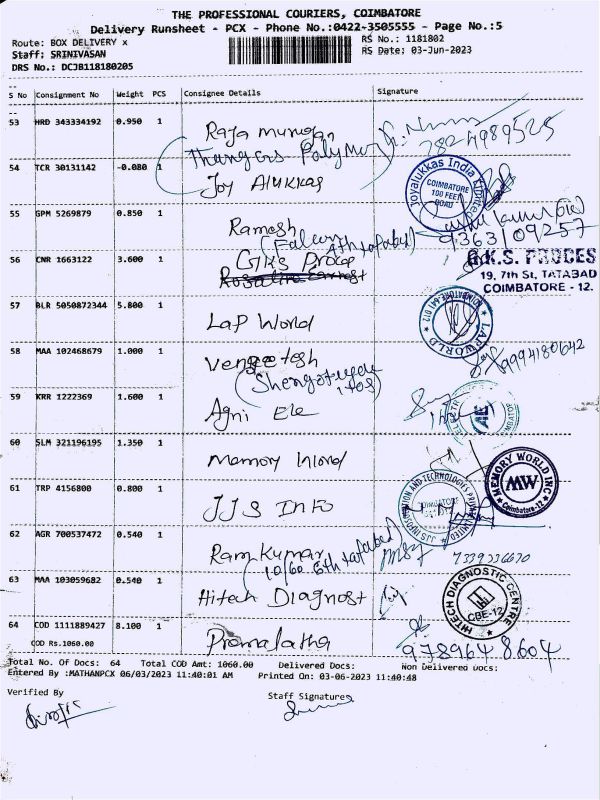 THE PROFESSIONAL COURIERS, COIMBATORE
Delivery Runsheet - PCX - Phone No.:0422-3505555 - Page No.:5
Route: BOX DELIVERY x
RS No.: 1181802
Staff: SRINIVASAN
RS Date: 03-Jun-2023
DRS No.: DCJB118180205
S No Consignment No Weight PCS Consignee Details Signature
53 HRD 343334192 0.950 1 Raja murugan
54 TCR 30131142 -0.080 1 Joy Alukkas
Joyalukkas India Limited
COIMBATORE
100 FEET
ROAD
55 GPM 5269879 0.850 1 Ramesh
9363109257
56 CNR 1663122 3.600 1
G.K.S. PROCES
19, 7th St, TATABAD
COIMBATORE - 12.
57 BLR 5050872344 5.800 1 Lap World
LAP WORLD
COIMBATORE-641 012
58 MAA 102468679 1.000 1
9994180642
59 KRR 1222369 1.600 1 Agni Ele
60 SLM 321196195 1.350 1 Memory World
MEMORY WORLD INC.
MW
Coimbatore-12
61 TRP 4156800 0.800 1 JJS INFO
62 AGR 700537472 0.540 1 Ram Kumar
63 MAA 103059682 0.540 1 Hitech Diagnost
HITECH DIAGNOSTIC CENTRE
CBE-12
64 COD 1111889427 8.100 1 Premalatha
COD Rs.1060.00
9789648604
Total No. Of Docs: 64 Total COD Amt: 1060.00 Delivered Docs: Non Delivered Docs:
Entered By :MATHANPCX 06/03/2023 11:40:01 AM Printed On: 03-06-2023 11:40:48
Verified By
Staff Signature